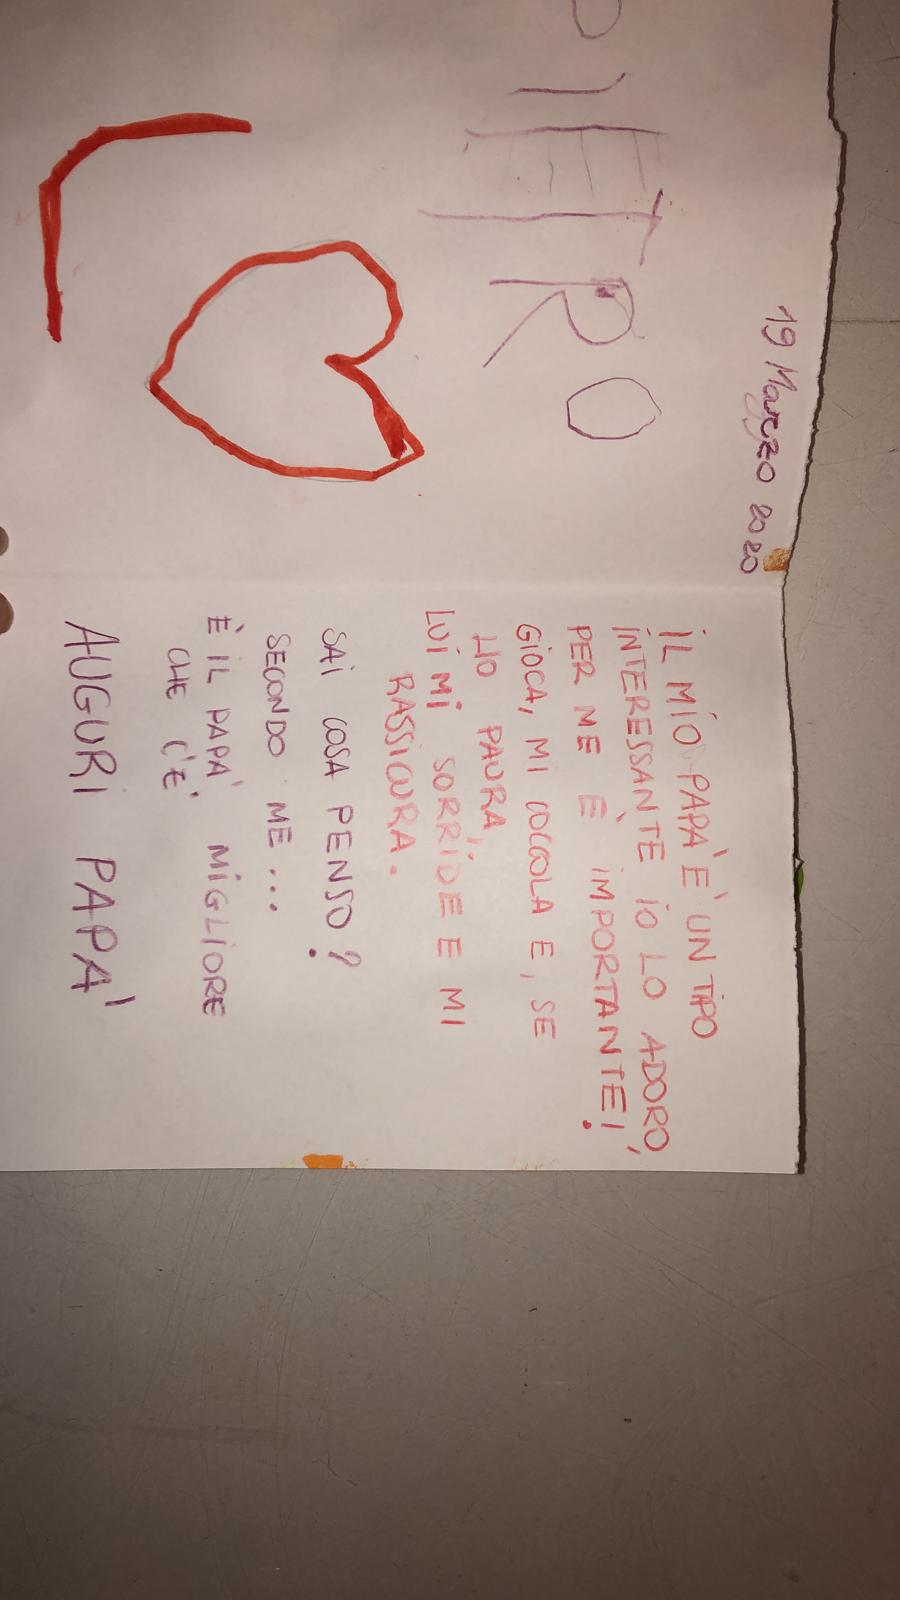 PIETRO
19 Marzo 2020
L
IL MIO PAPA' È UN TIPO
INTERESSANTE IO LO ADORO,
PER ME È IMPORTANTE!
GIOCA, MI COCCOLA E, SE
HO PAURA,
LUI MI SORRIDE E MI
RASSICURA.
SAI COSA PENSO?
SECONDO ME...
È IL PAPA' MIGLIORE
CHE C'È.
AUGURI PAPA'